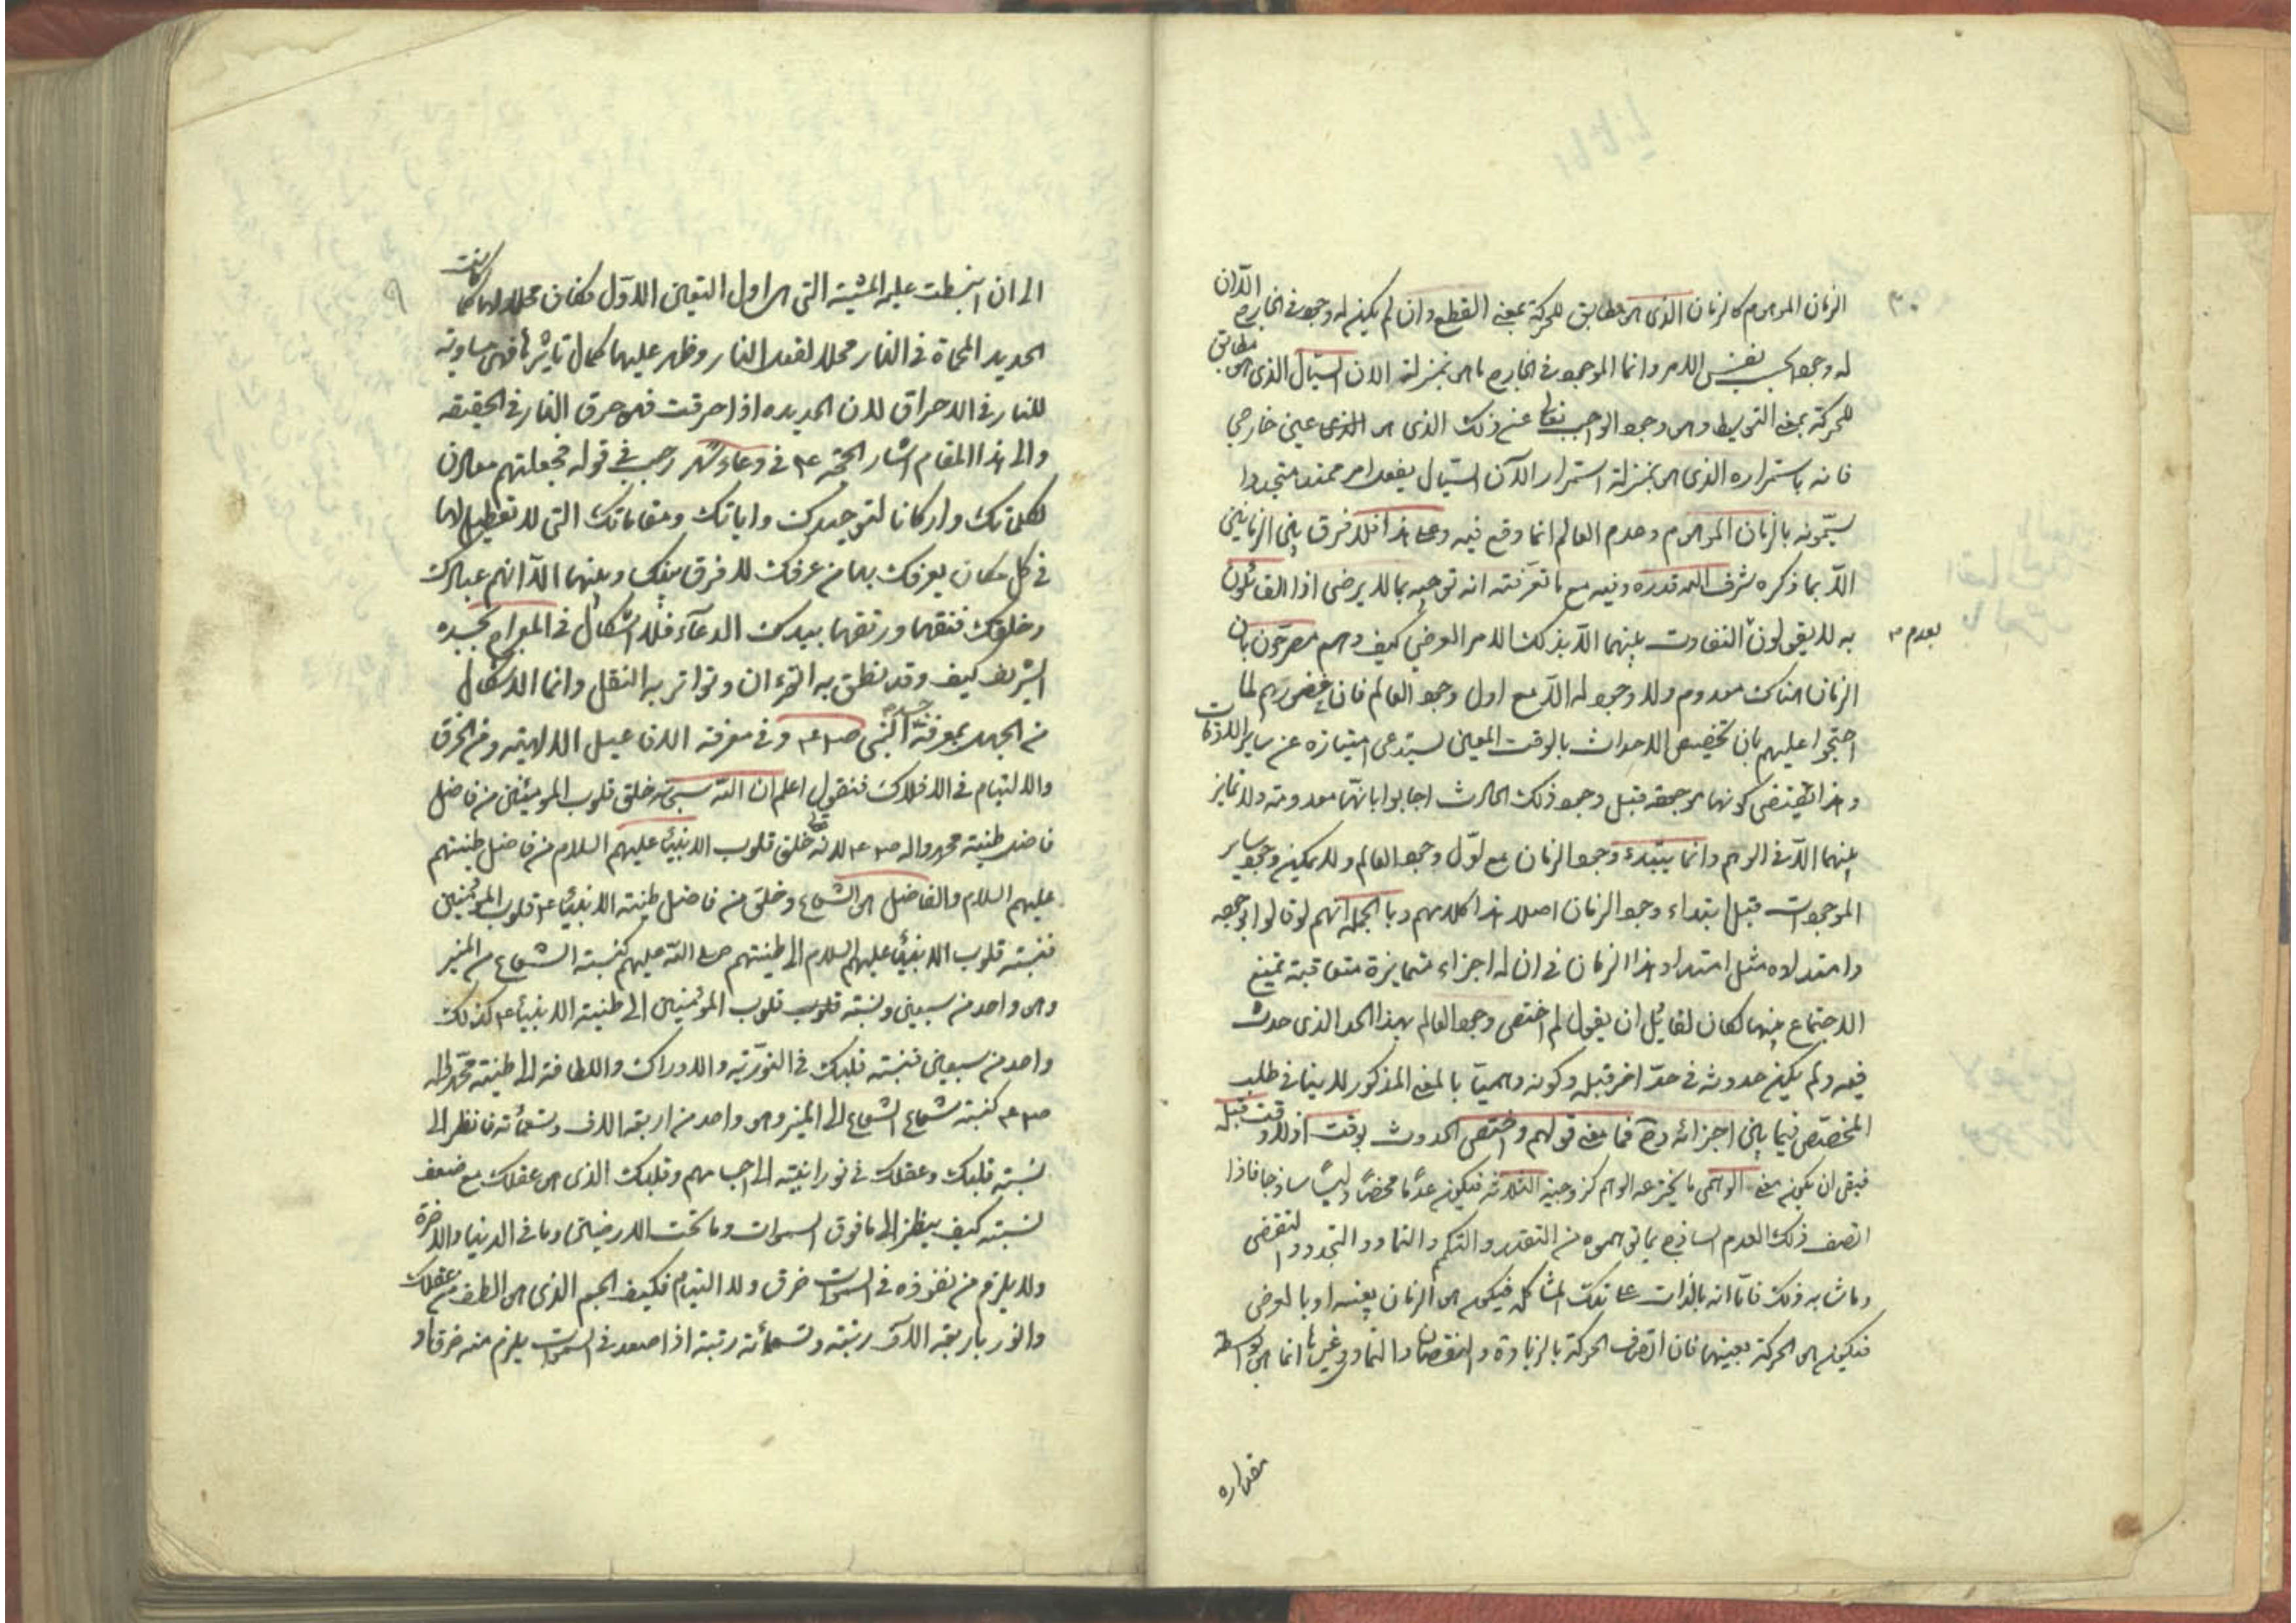 الزمان الموهوم كالزمان الذى هو مطابق للحركة بمعنى القطع وان لم يكن له وجود فى الخارج الا ان
له وجود بحسب نفس الامر وانما الموجود فى الخارج ما هو بمنزلة الان السيال الذى هو مطابق
للحركة بمعنى التوسط وهو وجود الواجب تعالى عن ذلك الذى هو الذى عين خارجي
فانه باستمراره الذى هو بمنزلة استمرار الآن السيال يفعل امر ممتد متجددا
يسمونه بالزمان الموهوم وعدم العالم انما وقع فيه وعلى هذا فلا فرق بين الزمانين
الا بما ذكره شرف الله قدره وفيه مع ما تعرفته انه توجيه بما لا يرضى اذا القائلون
به لا يقولون بعدم التفاوت بينهما الا بذلك الامر العرضي كيف وهم مصرحون بان
الزمان هناك معدوم ولا وجود له الا مع اول وجود العالم فان خصومهم لما
احتجوا عليهم بان تخصيص الاحداث بالوقت المعين يستدعى امتيازه عن ساير الاوقات
وهذا يقتضى كونها موجودة قبل وجود ذلك الحادث اجابوا بانها معدومة ولا تمايز
بينهما الا فى الوهم وانما يبتدء وجود الزمان مع اول وجود العالم ولا يمكن وجود ساير
الموجودات قبل ابتداء وجود الزمان اصلا هذا كلامهم وبالجملة انهم لو قالوا بوجوده
وامتداده مثل امتداد هذا الزمان فى ان له اجزاء متمايزة متعاقبة تمتنع
الاجتماع بينهما لكان لقائل ان يقول لم اختص وجود العالم بهذا الحد الذى حدث
فيه ولم يكن حدوثه فى حد اخر قبله وكونه وهميا بالمعنى المذكور لا ينافى طلب
المخصص فيما بين اجزائه وح فما معنى قولهم واختص الحدوث بوقت اذ لا وقت قبله
فبقى ان يكون معنى الوهمى ما يخترعه الوهم كزوجية الثلاثة فيكون عدما محضا وليسا ساذجا فاذا
اتصف ذلك العدم الساذج بما توهموه من التقدر والتكمم والتمادد والتجدد والتقضى
وما شابه ذلك فاما انه بالذات على تلك المشاكلة فيكون هو الزمان بعينه او بالعرض
فيكون هو الحركة بعينها فان اتصاف الحركة بالزيادة والنقصان والتمادى وغيرها انما هى بواسطة
مقداره
٩
الى ان انبسطت عليه المشية التى هى اول التعين الاول فكان محلا لها كما كانت
الحديد المحماة فى النار محلا لفعل النار وظهر عليها كمال تاثيرها فهى مساوية
للنار فى الاحراق لان الحديده اذا احرقت فهو حرق النار فى الحقيقه
والى هذا المقام اشار الحجة ع فى دعاء شهر رجب فى قوله فجعلتهم معادن
لكلماتك واركانا لتوحيدك واياتك ومقاماتك التى لا تعطيل لها
فى كل مكان يعرفك بها من عرفك لا فرق بينك وبينها الا انهم عبادك
وخلقك فتقها ورتقها بيدك الدعآء فلا اشكال فى المعراج بجسده
الشريف كيف وقد نطق به القرءان وتواتر به النقل وانما الاشكال
من الجهل بمعرفة جسم النبى ص وفى معرفة الافاعيل الالهية ومن الخرق
والالتيام فى الافلاك فنقول اعلم ان الله سبحانه خلق قلوب المومنين من فاضل
فاضل طينة محمد واله ص لانه تعالى خلق قلوب الانبياء عليهم السلام من فاضل طينتهم
عليهم السلام والفاضل هو الشعاع وخلق من فاضل طينة الانبياء ع قلوب المؤمنين
فنسبة قلوب الانبياء عليهم السلام الى طينتهم صلى الله عليهم كنسبة الشعاع من المنير
وهو واحد من سبعين ونسبة قلوب قلوب المؤمنين الى طينة الانبياء ع كذلك
واحد من سبعين فنسبة قلبك فى النورية والادراك واللطافة الى طينة محمد واله
ص كنسبة شعاع الشعاع الى المنير وهو واحد من اربعة الاف وتسعمائة فانظر الى
نسبة قلبك وعقلك فى نورانيته الى اجسامهم وقلبك الذى هو عقلك مع ضعف
نسبته كيف ينظر الى ما فوق السموات وما تحت الارضين وما فى الدنيا والاخرة
ولا يلزم من نفوذه فى السموات خرق ولا التيام فكيف الجسم الذى هو الطف من عقلك
وانور باربعة الاف رتبة وتسعمائة رتبة اذا صعد فى السموات يلزم منه خرقا و